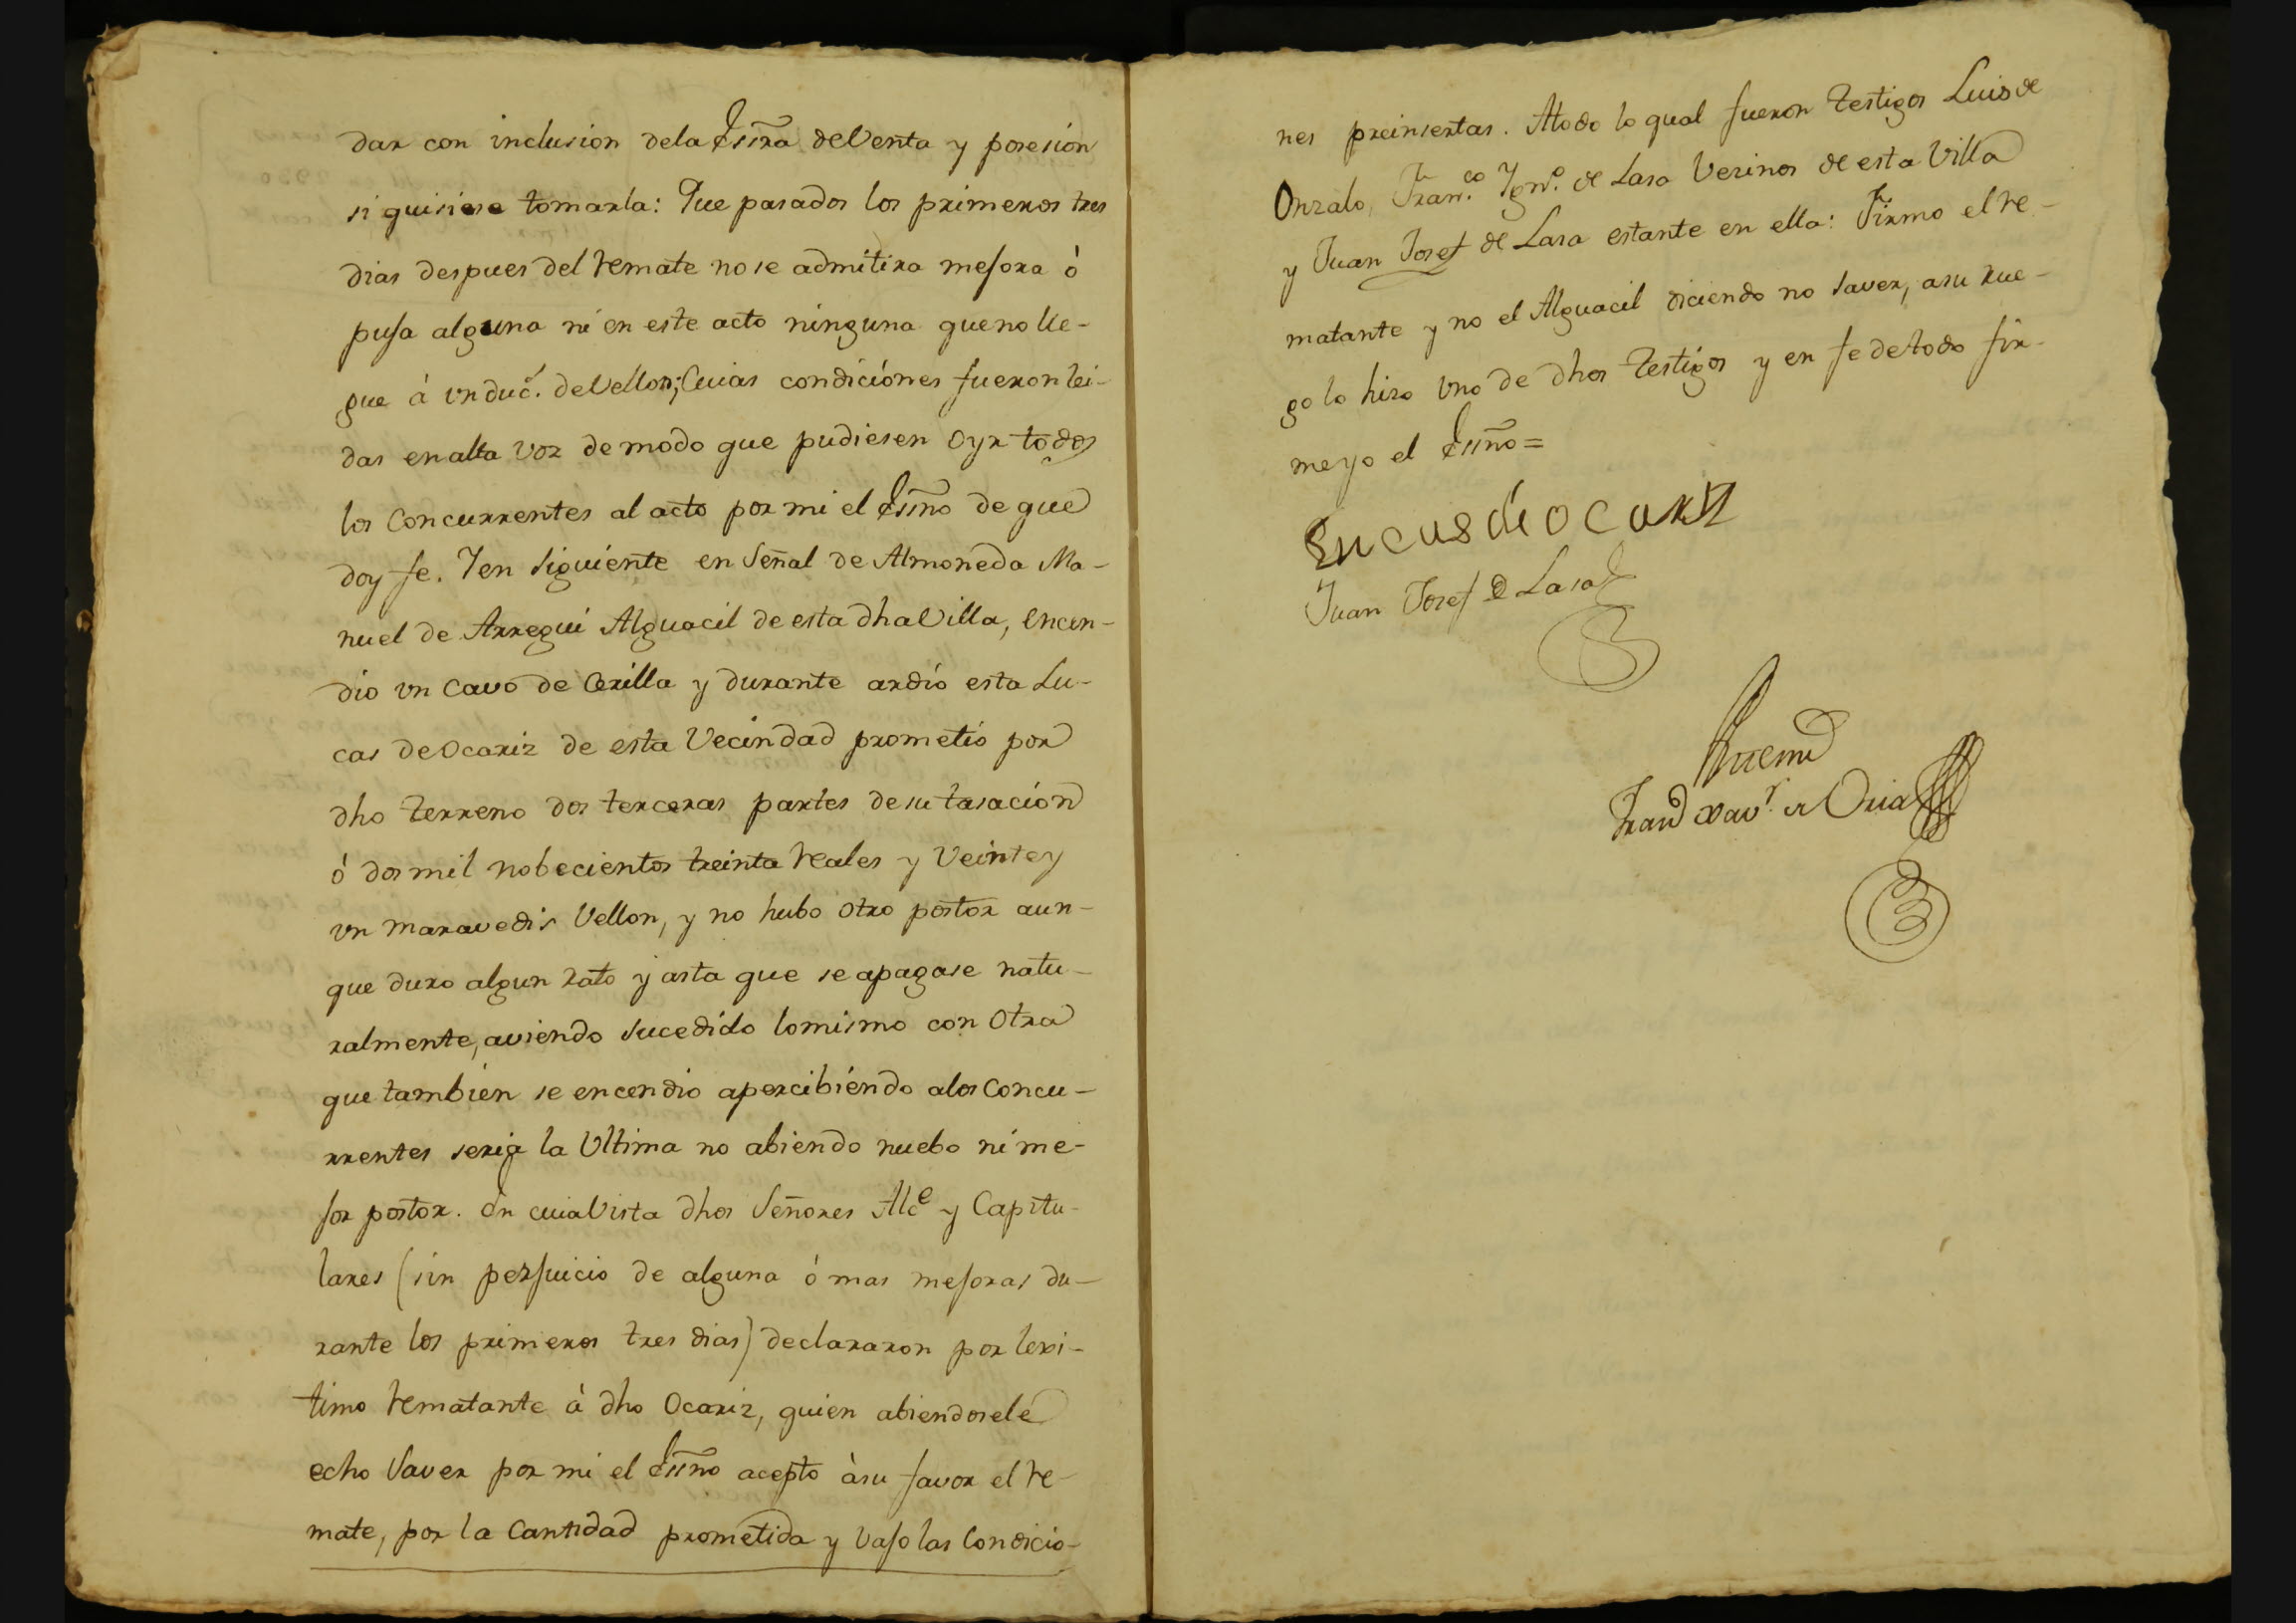 dar con inclusion dela Essra de Venta y posesion
si quisiese tomarla: Que pasados los primeros tres
dias despues del remate no se admitira mejora ò
puja alguna ni en este acto ninguna que no lle-
gue à un duc.º de Vellon; Cuias condiciónes fueron lei-
das en alta voz de modo que pudiesen oyr todos
los Concurrentes al acto por mi el Essno de que
doy fe. Y en siguiente en señal de Almoneda Ma-
nuel de Arregui Alguacil de esta dha Villa, encen-
dio un cavo de Cerilla y durante ardió esta Lu-
cas de Ocariz de esta Vecindad prometió por
dho terreno dos terceras partes de su tasación
ó dos mil nobecientos treinta reales y Veinte y
un maravedis Vellon, y no hubo otro postor aun-
que duro algun rato y asta que se apagase natu-
ralmente, aviendo sucedido lo mismo con Otra
que tambien se encendio apercibiéndo a los Concu-
rrentes seria la Ultima no abiendo nuebo ni me-
jor postor. En cuia Vista dhos Señores Alce y Capitu-
lares (sin perjuicio de alguna ó mas mejoras du-
rante los primeros tres dias) declararon por lexi-
timo rematante à dho Ocariz, quien abiendosele
echo saver por mi el Essno acepto à su favor el re-
mate, por la Cantidad prometida y vajo las Condicio-
nes preinsertas. A todo lo qual fueron testigos Luis de
Onzalo, Fran.co Ign.º de Lasa Vezinos de esta Villa
y Juan Josef de Lasa estante en ella: Firmo el re-
matante y no el Alguacil diciendo no saver, a su rue-
go lo hizo uno de dhos testigos y en fe de todo fir-
me yo el Essno=
Lucas de Ocariz
Juan Josef de Lasa
Ante mi
Fran.co Xav.r de Oria